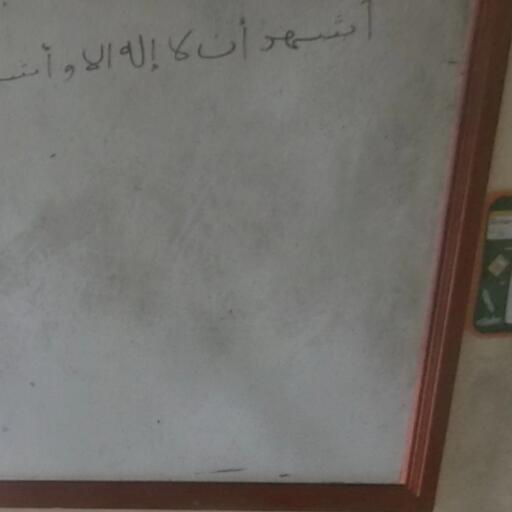 أشهد أن لا إله الا وأش